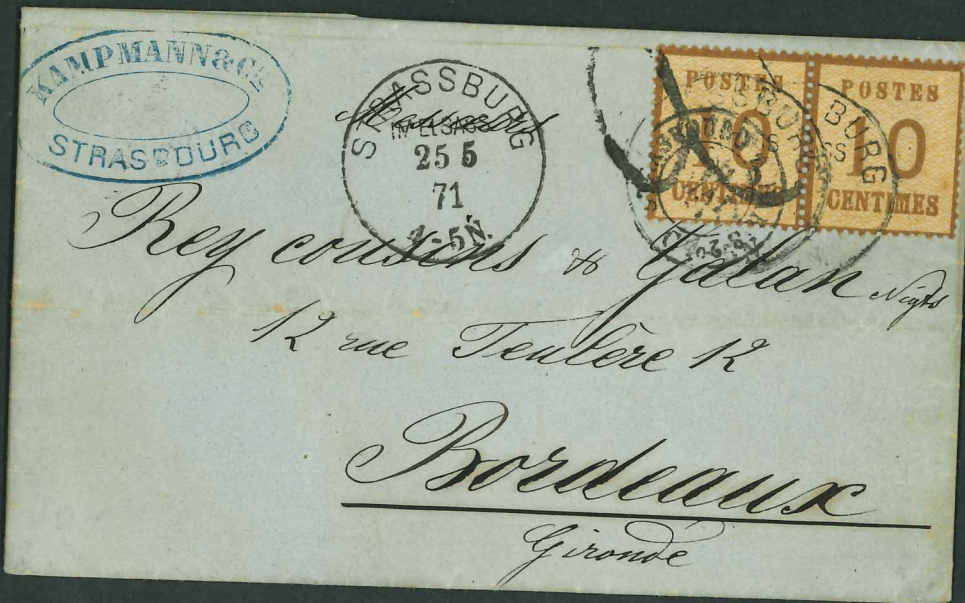 KAMPMANN & Cie
STRASBOURG
STRASSBURG
IM ELSASS
25 5
71
4-5N.
Messieurs
POSTES
10
CENTIMES
POSTES
10
CENTIMES
BURG
Rey cousins & Galan Nigts
12 rue Teulère 12
Bordeaux
Gironde